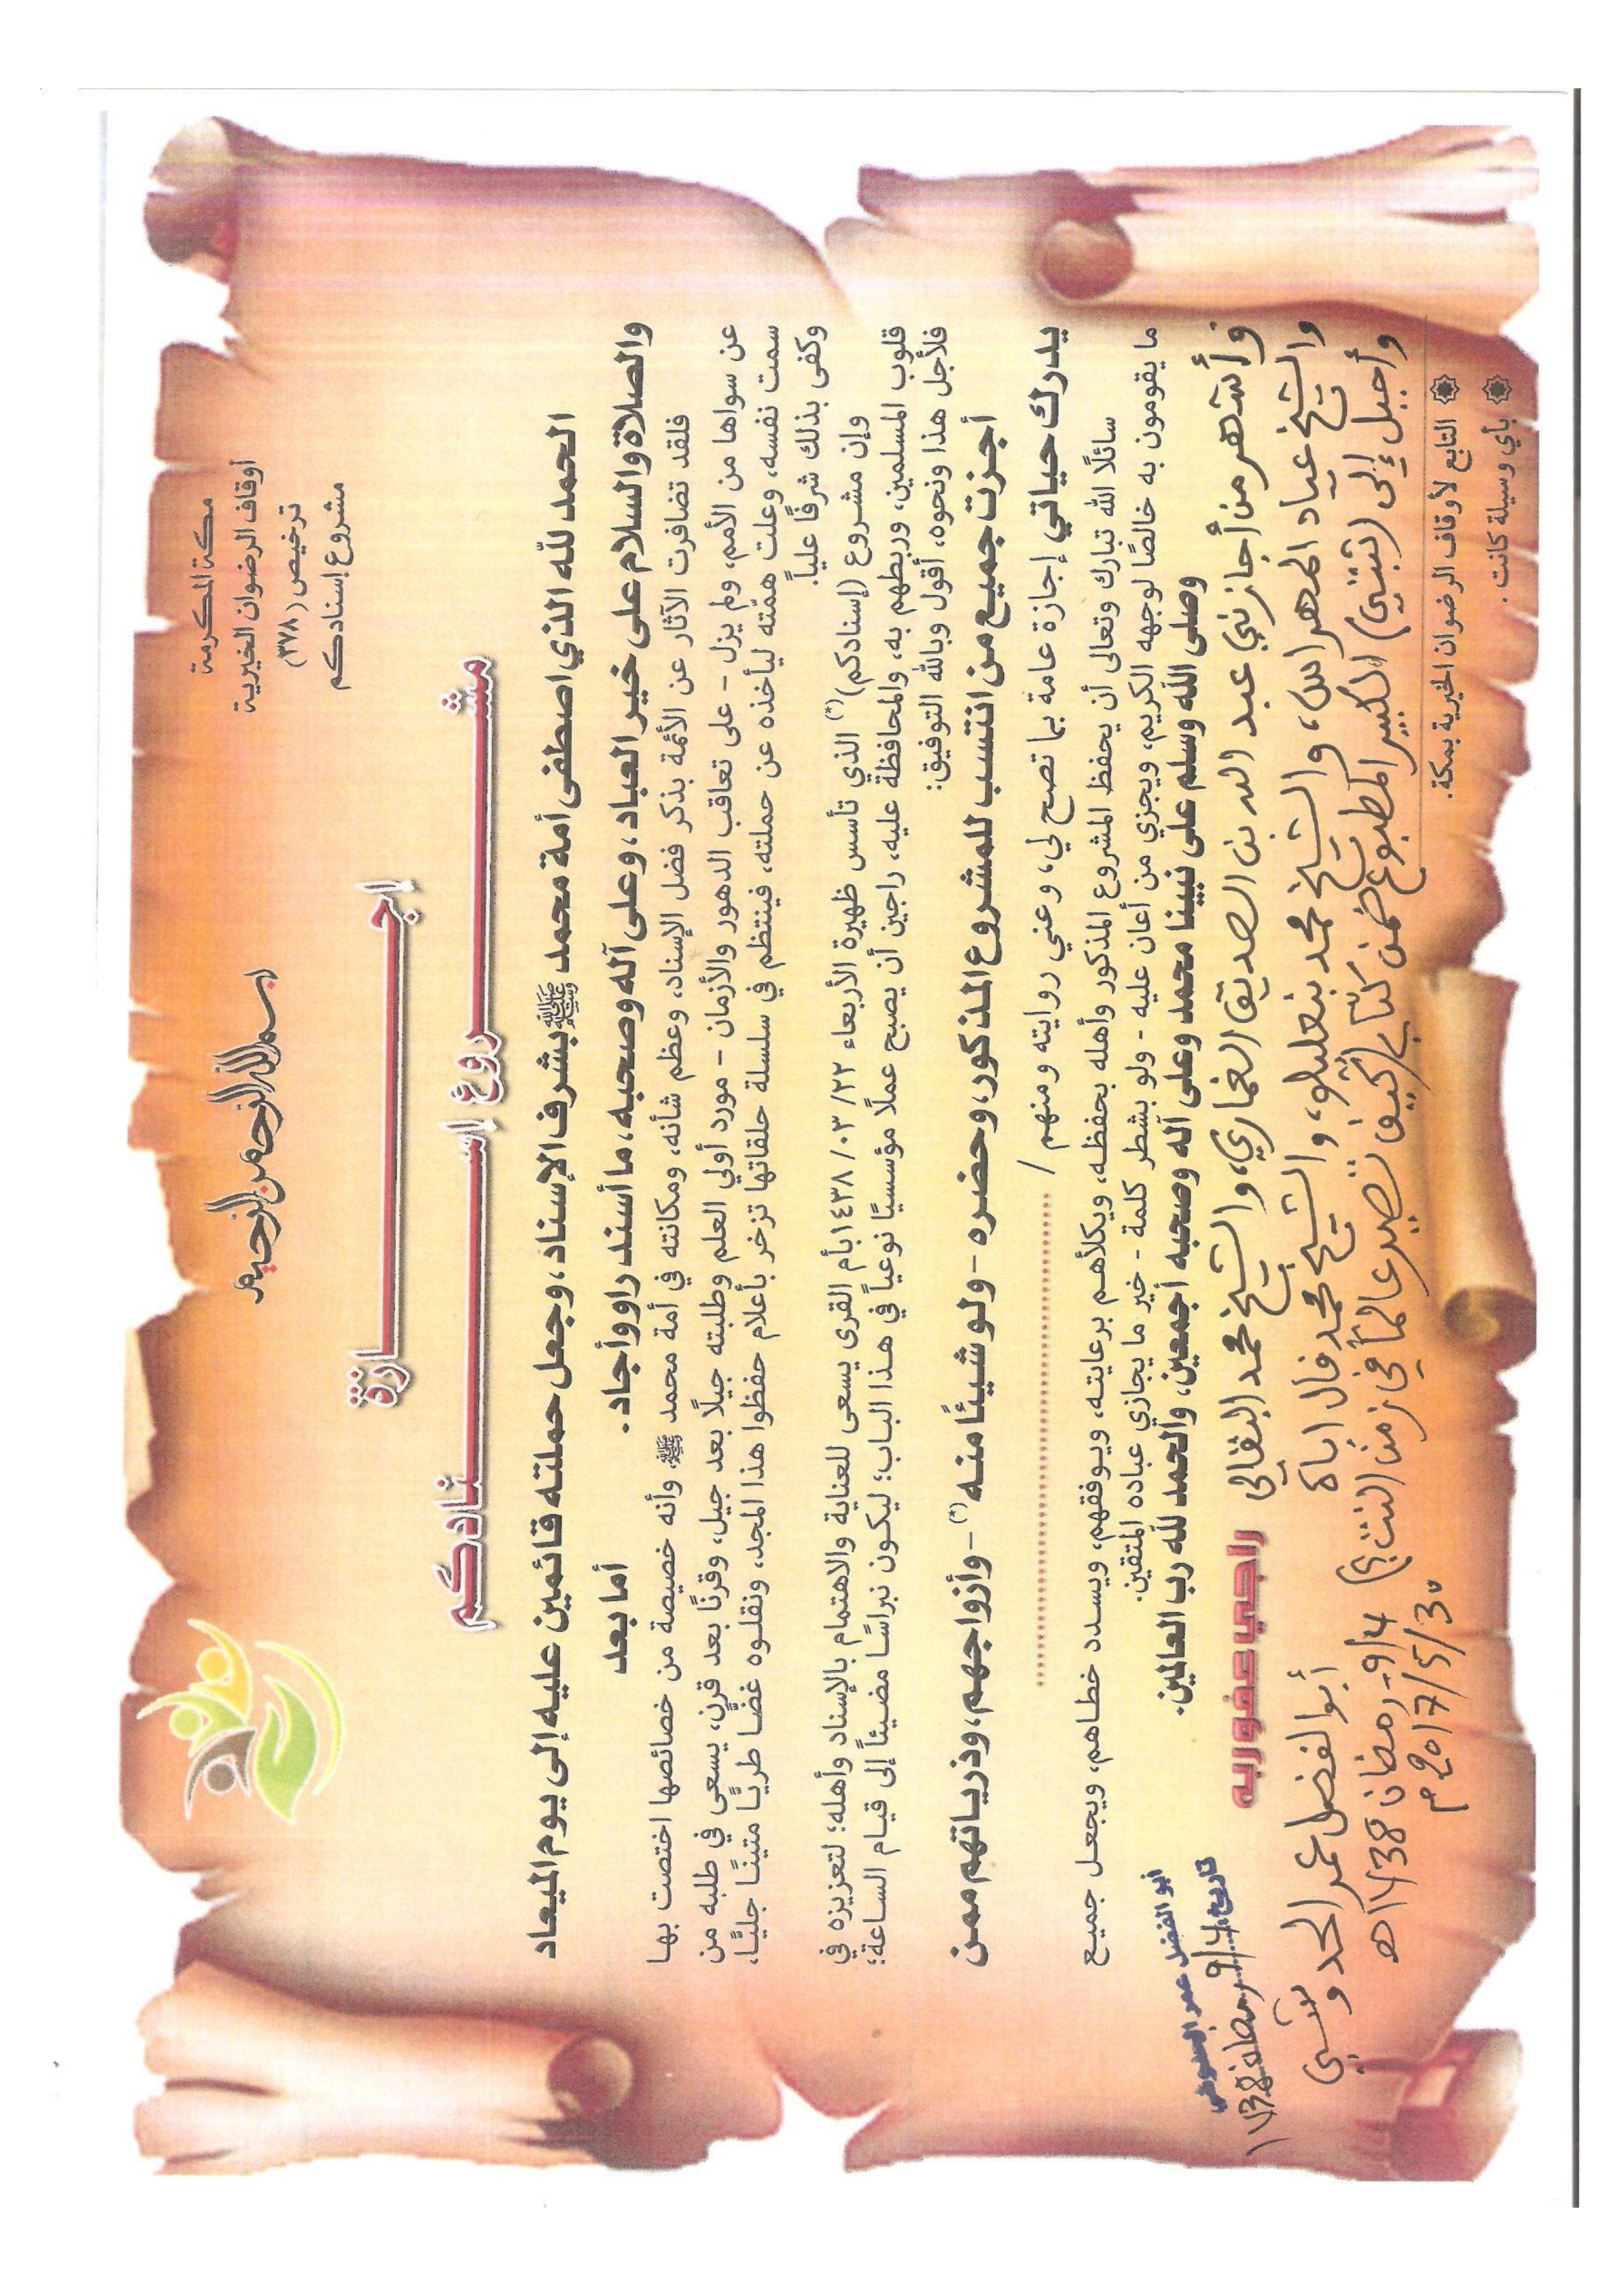 بسم الله الرحمن الرحيم
مكة المكرمة
أوقاف الرضوان الخيرية
ترخيص (٣٧٨)
مشروع إسنادكم
إجـــــازة
مشـــــروع إســـــنادكم
الحمد لله الذي اصطفى أمة محمد ﷺ بشرف الإسناد، وجعل حملته قائمين عليه إلى يوم الميعاد
والصلاة والسلام على خير العباد، وعلى آله وصحبه، ما أسند راو وأجاد.
أما بعد
فلقد تضافرت الآثار عن الأئمة بذكر فضل الإسناد، وعظم شأنه، ومكانته في أمة محمد ﷺ، وأنه خصيصة من خصائصها اختصت بها
عن سواها من الأمم، ولم يزل - على تعاقب الدهور والأزمان - مورد أولي العلم وطلبته جيلًا بعد جيل، وقرنًا بعد قرن، يسعى في طلبه من
سمت نفسه، وعلت همّته ليأخذه عن حملته، فينتظم في سلسلة حلقاتها تزخر بأعلام حفظوا هذا المجد، ونقلوه غضًّا طريًّا متينًا جليًّا،
وكفى بذلك شرفًا عليًا.
وإن مشروع (إسنادكم)(*) الذي تأسس ظهيرة الأربعاء ٢٢/ ٠٣/ ١٤٣٨ بأم القرى يسعى للعناية والاهتمام بالإسناد وأهله؛ لتعزيزه في
قلوب المسلمين، وربطهم به، والمحافظة عليه، راجين أن يصبح عملًا مؤسسيًا نوعياً في هذا الباب؛ ليكون نبراسًا مضيئاً إلى قيام الساعة؛
فلأجل هذا ونحوه، أقول وبالله التوفيق:
أجزت جميع من انتسب للمشروع المذكور، وحضره - ولو شيئًا منه(*) - وأزواجهم، وذرياتهم ممن
يدرك حياتي إجازة عامة بما تصح لي، وعني روايته ومنهم /
سائلًا الله تبارك وتعالى أن يحفظ المشروع المذكور وأهله بحفظه، ويكلأهم برعايته، ويوفقهم، ويسدد خطاهم، ويجعل جميع
ما يقومون به خالصًا لوجهه الكريم، ويجزي من أعان عليه - ولو بشطر كلمة - خير ما يجازي عباده المتقين.
وصلى الله وسلم على نبينا محمد وعلى آله وصحبه أجمعين، والحمد لله رب العالمين.
وأشهر من أجازني عبد الله بن الصديق الغماري، والشيخ محمد البقالي
راجي عفو ربه
أبو الفضل عمر الحدوشي
تاريخ: 4/9 رمضان 1438
والشيخ عياد المهراس، والشيخ محمد بنعليلو، والشيخ محمد فال اباه
وأحيل إلى (ثبتي) الكبير المطبوع ضمن كتابي (كيف تصير عالماً في زمن النت؟)
أبو الفضل عمر الحدوشي
4/9 رمضان 1438هـ
30/5/2017م
التابع لأوقاف الرضوان الخيرية بمكة.
بأي وسيلة كانت.